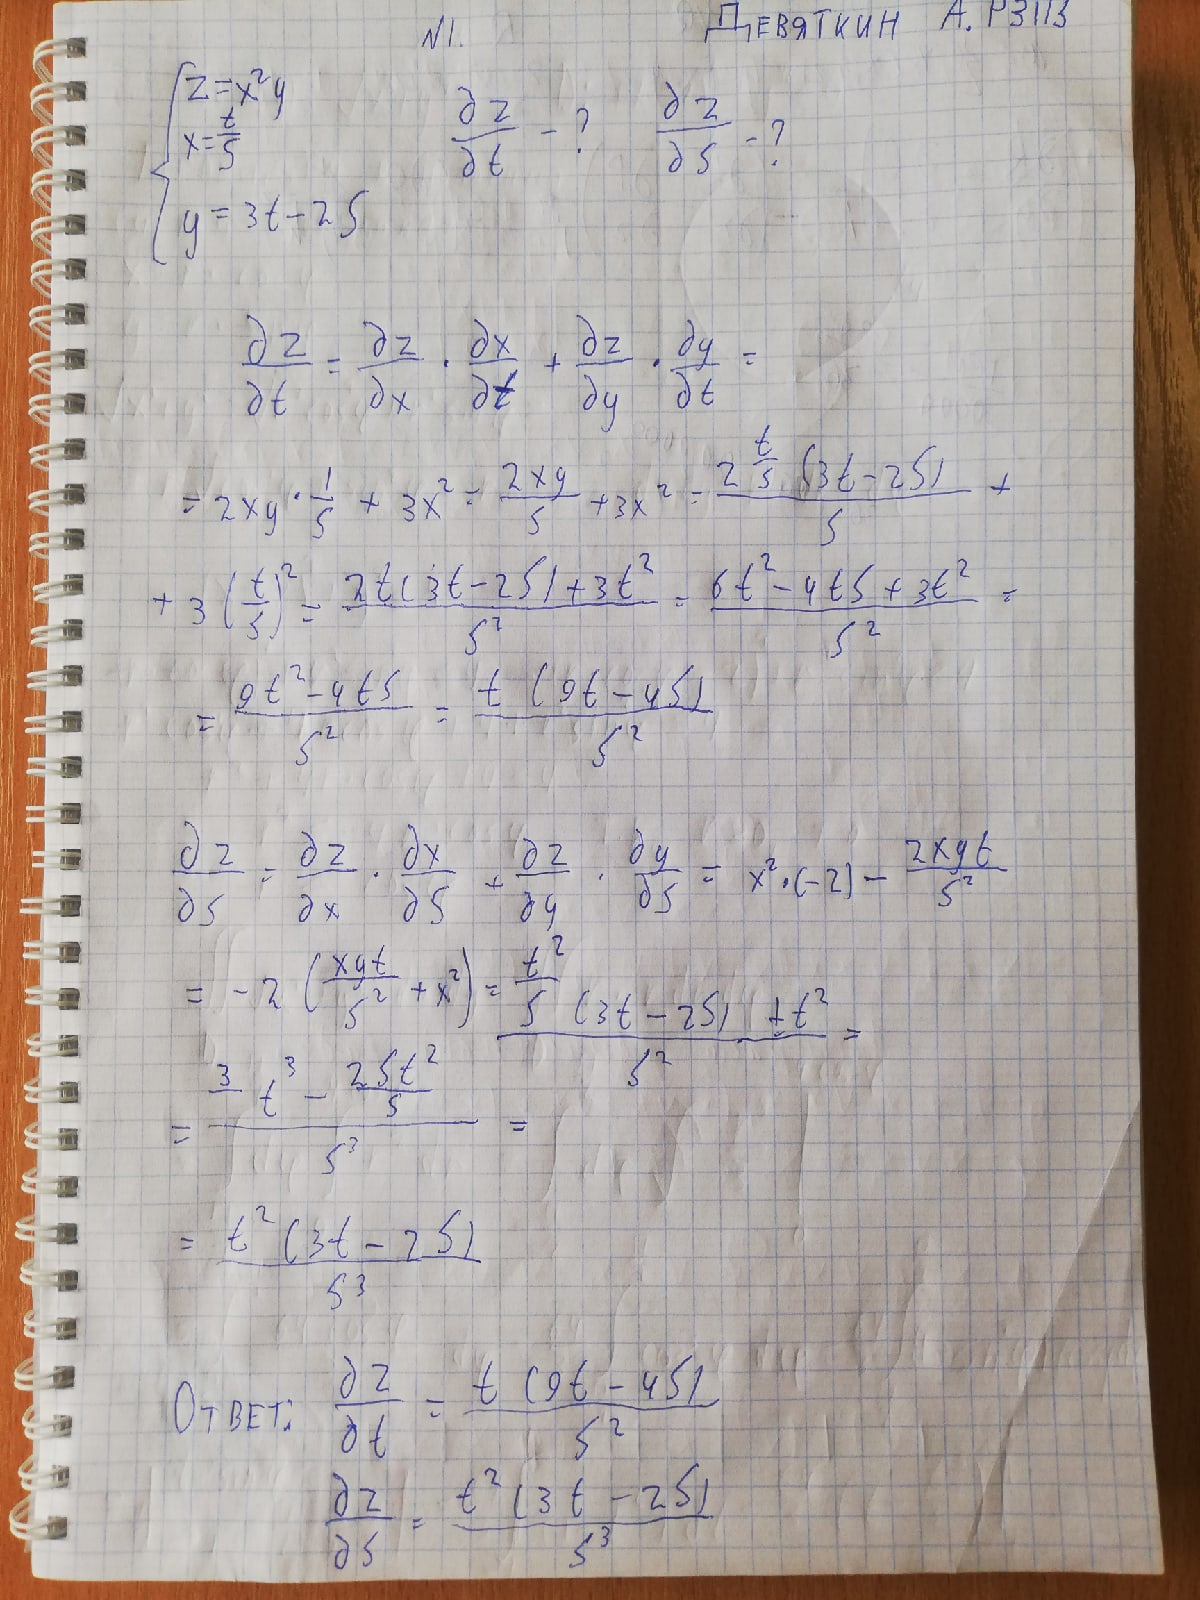 N1. Девяткин А. Р3113
z=x²y
x=t/s ∂z/∂t - ? ∂z/∂s - ?
y=3t-2s
∂z/∂t = ∂z/∂x · ∂x/∂t + ∂z/∂y · ∂y/∂t =
= 2xy · 1/s + 3x² = 2xy/s + 3x² = (2 t/s (3t-2s))/s +
+ 3(t/s)² = (2t(3t-2s)+3t²)/s² = (6t²-4ts+3t²)/s² =
= (9t²-4ts)/s² = (t(9t-4s))/s²
∂z/∂s = ∂z/∂x · ∂x/∂s + ∂z/∂y · ∂y/∂s = x²·(-2) - 2xyt/s²
= -2(xyt/s² + x²) = (t²/s (3t-2s) + t²)/s² =
= (3t³ - 2st²/s)/s³ =
= (t²(3t-2s))/s³
Ответ: ∂z/∂t = (t(9t-4s))/s²
∂z/∂s = (t²(3t-2s))/s³